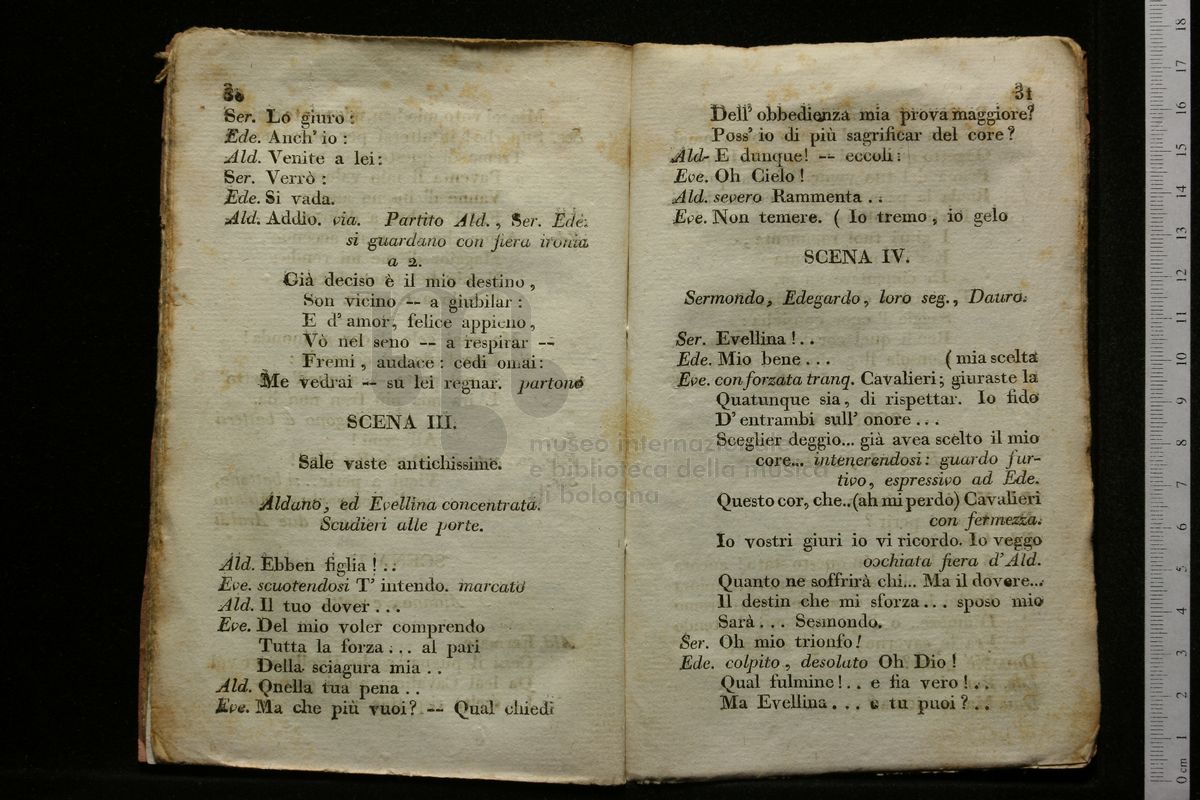 30
Ser. Lo giuro :
Ede. Anch' io :
Ald. Venite a lei:
Ser. Verrò :
Ede. Si vada.
Ald. Addio. via. Partito Ald., Ser. Ede.
si guardano con fiera ironia
a 2.
Già deciso è il mio destino,
Son vicino -- a giubilar :
E d' amor, felice appieno,
Vò nel seno -- a respirar --
Fremi, audace : cedi omai:
Me vedrai -- su lei regnar. partono
SCENA III.
Sale vaste antichissime.
Aldano, ed Evellina concentrata.
Scudieri alle porte.
Ald. Ebben figlia ! . .
Eve. scuotendosi T' intendo. marcato
Ald. Il tuo dover . . .
Eve. Del mio voler comprendo
Tutta la forza . . . al pari
Della sciagura mia . .
Ald. Qnella tua pena . .
Eve. Ma che più vuoi? -- Qual chiedi
31
Dell' obbedienza mia prova maggiore?
Poss' io di più sagrificar del core ?
Ald- E dunque! -- eccoli :
Eve. Oh Cielo !
Ald. severo Rammenta . .
Eve. Non temere. ( Io tremo, io gelo
SCENA IV.
Sermondo, Edegardo, loro seg., Dauro.
Ser. Evellina ! . .
Ede. Mio bene . . . ( mia scelta
Eve. con forzata tranq. Cavalieri; giuraste la
Quatunque sia, di rispettar. Io fido
D' entrambi sull' onore . . .
Sceglier deggio... già avea scelto il mio
core... intenerendosi: guardo fur-
tivo, espressivo ad Ede.
Questo cor, che..(ah mi perdo) Cavalieri
con fermezza.
Io vostri giuri io vi ricordo. Io veggo
occhiata fiera d' Ald.
Quanto ne soffrirà chi... Ma il dovere...
Il destin che mi sforza... sposo mio
Sarà . . . Sesmondo.
Ser. Oh mio trionfo!
Ede. colpito, desolato Oh Dio !
Qual fulmine ! . . e fia vero ! . .
Ma Evellina . . . e tu puoi ? . .
museo internazionale
e biblioteca della musica
di bologna
0 cm 1 2 3 4 5 6 7 8 9 10 11 12 13 14 15 16 17 18